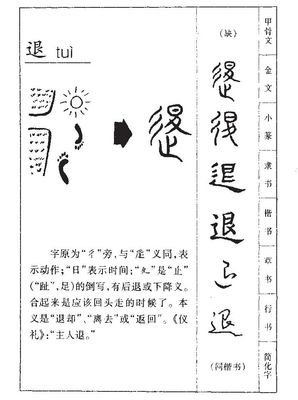 退 tuì
(缺)
甲骨文
金文
小篆
隶书
楷书
草书
行书
简化字
(同楷书)
字原为“彳”旁,与“辵”义同,表
示动作;“日”表示时间;“夂”是“止”
(“趾”,足)的倒写,有后退或下降义。
合起来是应该回头走的时候了。本
义是“退却”、“离去”或“返回”。《仪
礼》:“主人退。”